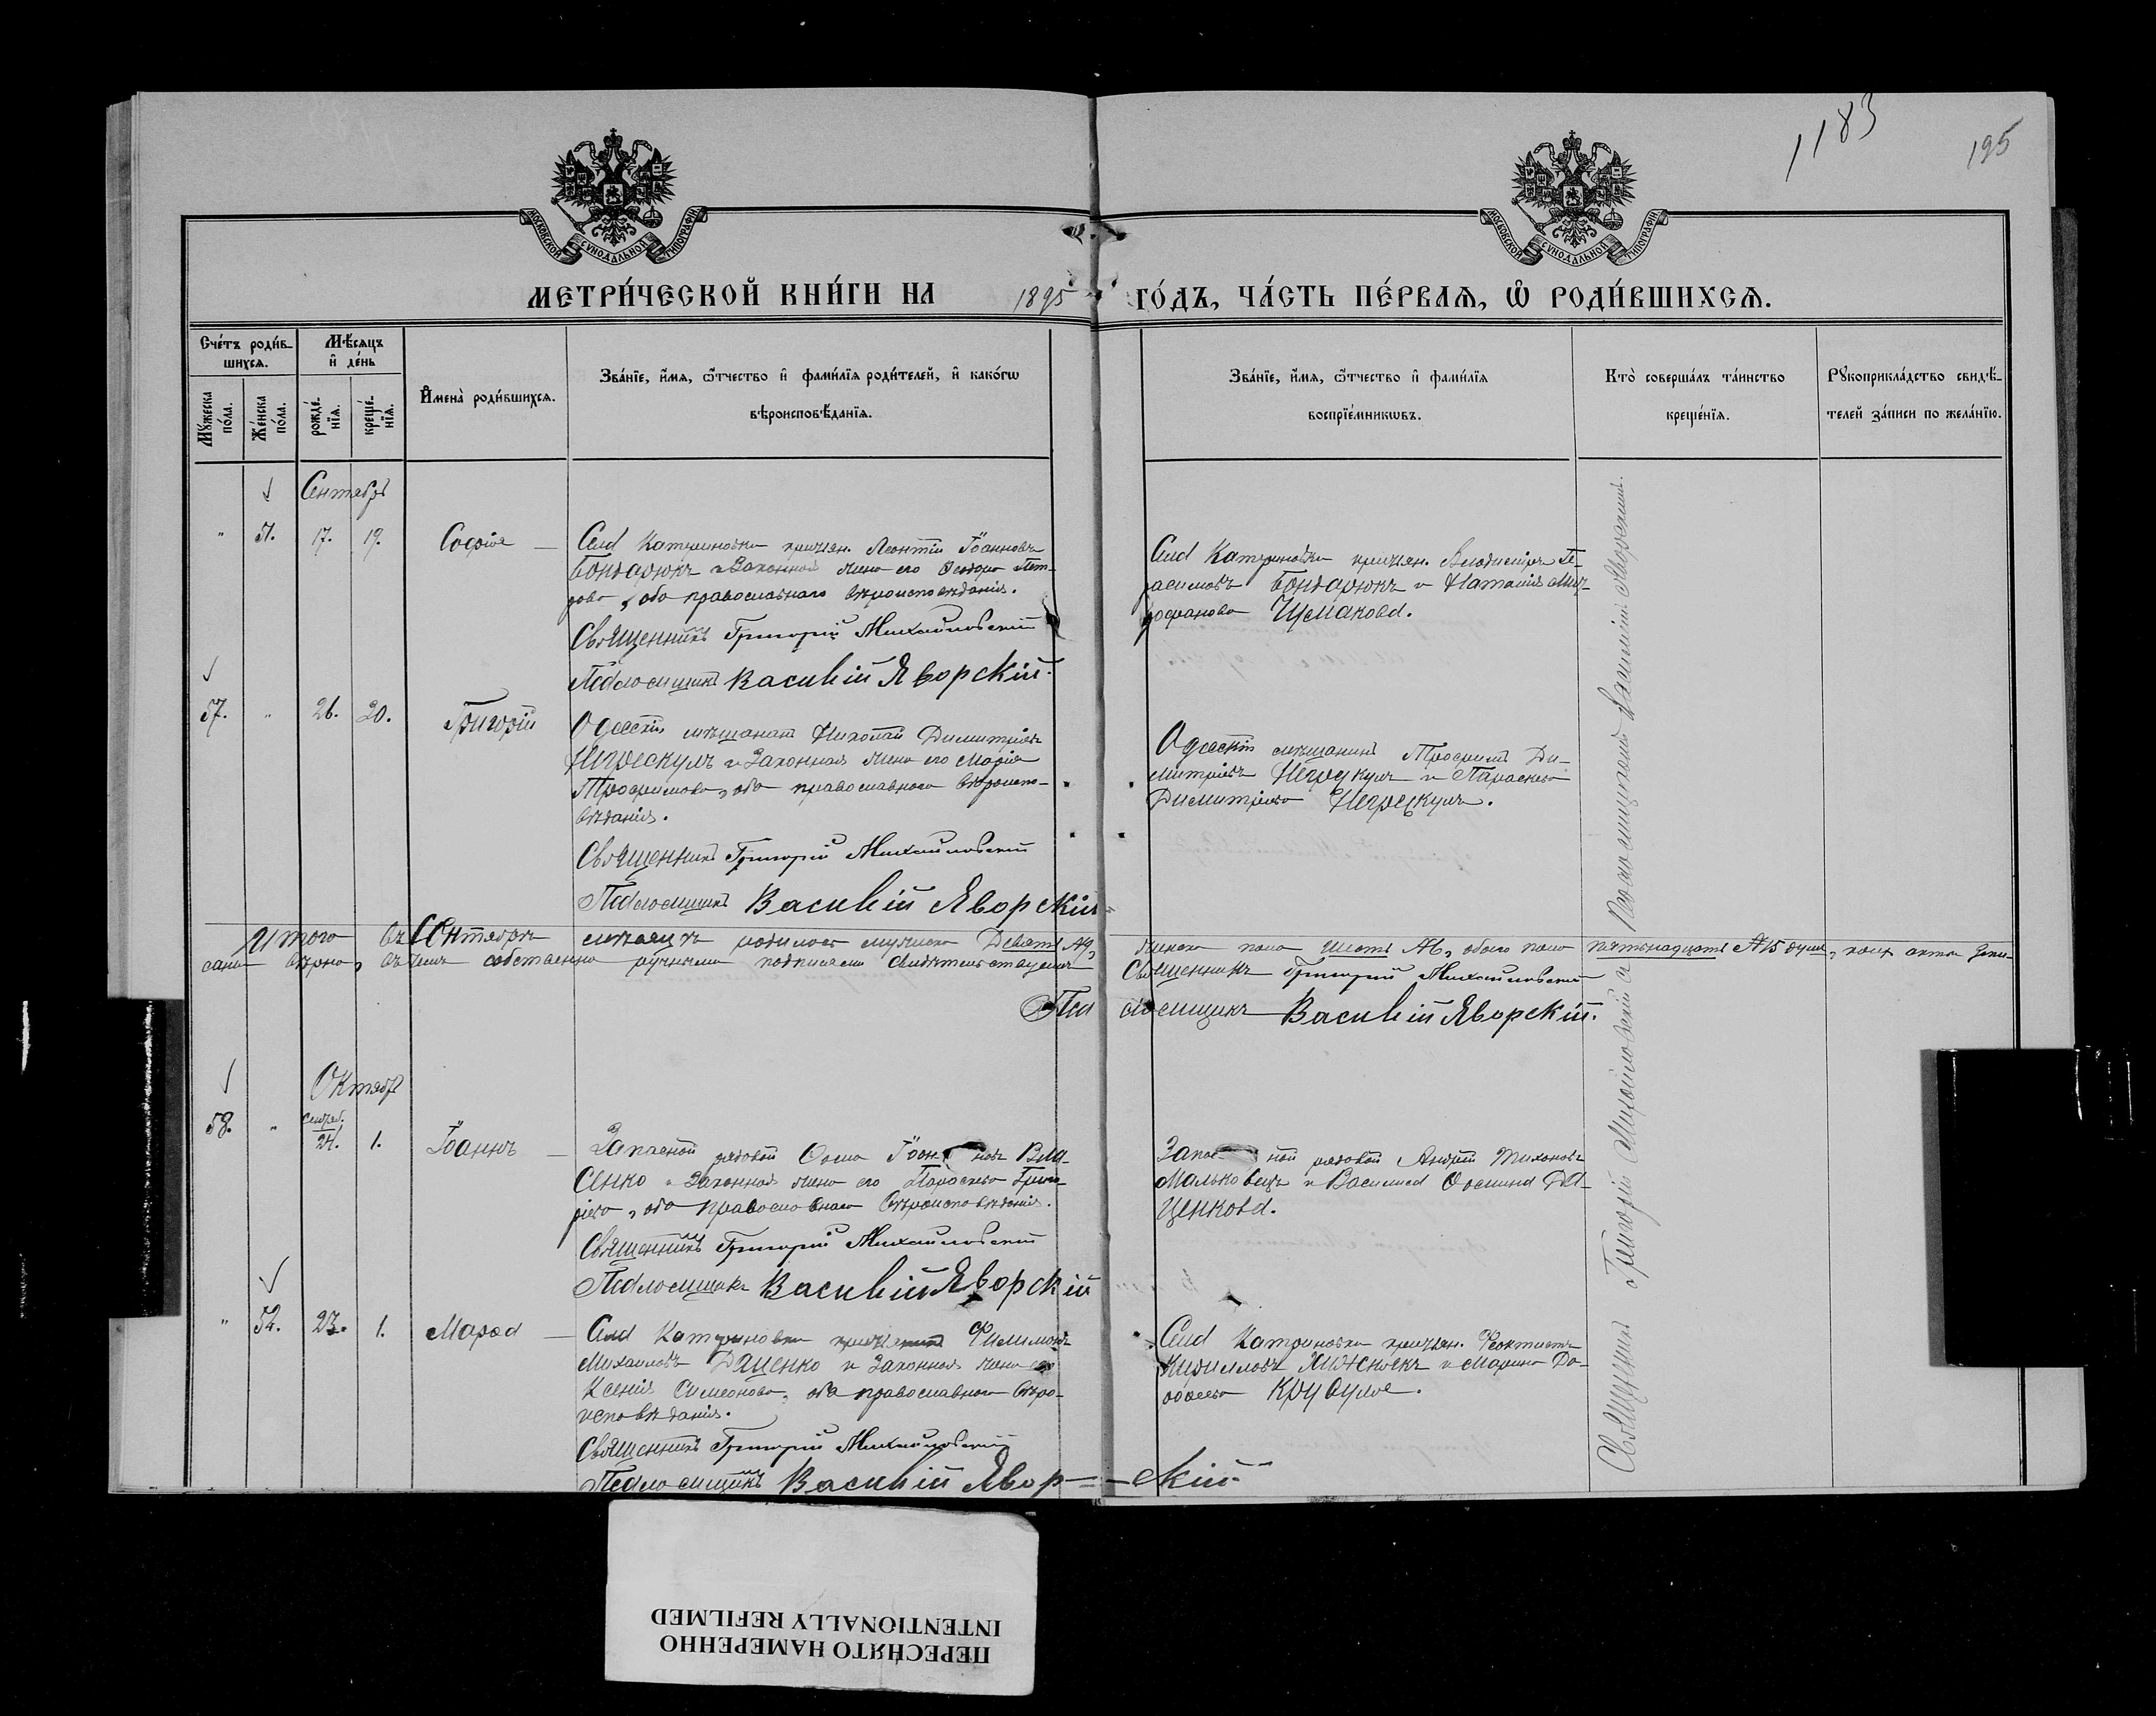 1183
195
МОСКОВСКОЙ СѴНОДАЛЬНОЙ ТИПОГРАФІИ
МОСКОВСКОЙ СѴНОДАЛЬНОЙ ТИПОГРАФІИ
МЕТРИ́ЧЕСКОЙ КНИ́ГИ НА 1895 ГО́ДЪ, ЧА́СТЬ ПЕ́РВАЯ, Ѽ РОДИ́ВШИХСЯ.
Сче́тъ роди́в-
шихся.
Мѣ́сяцъ
и҆ де́нь
Мꙋ́жеска по́ла.
Же́нска по́ла.
рожде́-
нїя.
креще́-
нїя.
И҆мена̀ роди́вшихся.
Зва́нїе, и҆́мя, ѻ҆́тчество и҆ фами́лїя роди́телей, и҆ како́гѡ
вѣроисповѣ́данїя.
Зва́нїе, и҆́мя, ѻ҆́тчество и҆ фами́лїя
воспрїе́мникѡвъ.
Кто̀ соверша́лъ та́инство
креще́нїя.
Рꙋкоприкла́дство свидѣ́-
телей за́писи по жела́нїю.
Сентябрь
" 51. 17. 19. Софія
Села Катериновки крестьян. Леонтій Іоанновъ
Бондарюкъ и Законная жена его Ѳеодора Пет-
рова, оба православнаго вѣроисповѣданія.
Священникъ Григорій Михайловскій
Псаломщикъ Василій Яворскій.
Села Катериновки крестьян. Владиміръ Ге-
расимовъ Бондарюкъ и Наталія Мит-
рофанова
57. " 26. 30. Григорій
Одесскій мѣщанинъ Николай Димитріевъ
Негрескулъ и Законная жена его Марія
Трофимова, оба православнаго вѣроиспо-
вѣданія.
Священникъ Григорій Михайловскій
Псаломщикъ Василій Яворскій
Одесскій мѣщанинъ Трофимъ Ди-
митріевъ Негрескулъ и Параскева
Димитріева Негрескулъ.
Итого въ Сентябрѣ мѣсяцѣ родилось мужеска Девять №9, женска пола шесть №6, обоего пола пятьнадцать №15 душъ, коихъ акты запи-
саны вѣрно, въ чемъ собственно ручными подписями свидѣтельствуемъ
Священникъ Григорій Михайловскій
Псаломщикъ Василій Яворскій.
Октябрь
58. " Сентяб. 24. 1. Іоаннъ
Запасной рядовой Ѳома Іоанновъ Вла-
сенко и Законная жена его Параскева Григо-
ріева, оба православнаго вѣроисповѣданія.
Священникъ Григорій Михайловскій
Псаломщикъ Василій Яворскій
Запасной рядовой Андрей Тихоновъ
Мальковецъ и Василиса Ѳомина Да-
ценкова.
" 52. 23. 1. Мавра
Села Катериновки Филимонъ
Михаиловъ Даценко и Законная жена его
Ксенія Симеонова, оба православнаго вѣро-
исповѣданія.
Священникъ Григорій Михайловскій
Псаломщикъ Василій Яворскій.
Села Катериновки крестьян. Феоктистъ
Кирилловъ и Марина
Священникъ Григорій Михайловскій съ Псаломщикомъ Василіемъ Яворскимъ.
ПЕРЕСНЯТО НАМЕРЕННО
INTENTIONALLY REFILMED